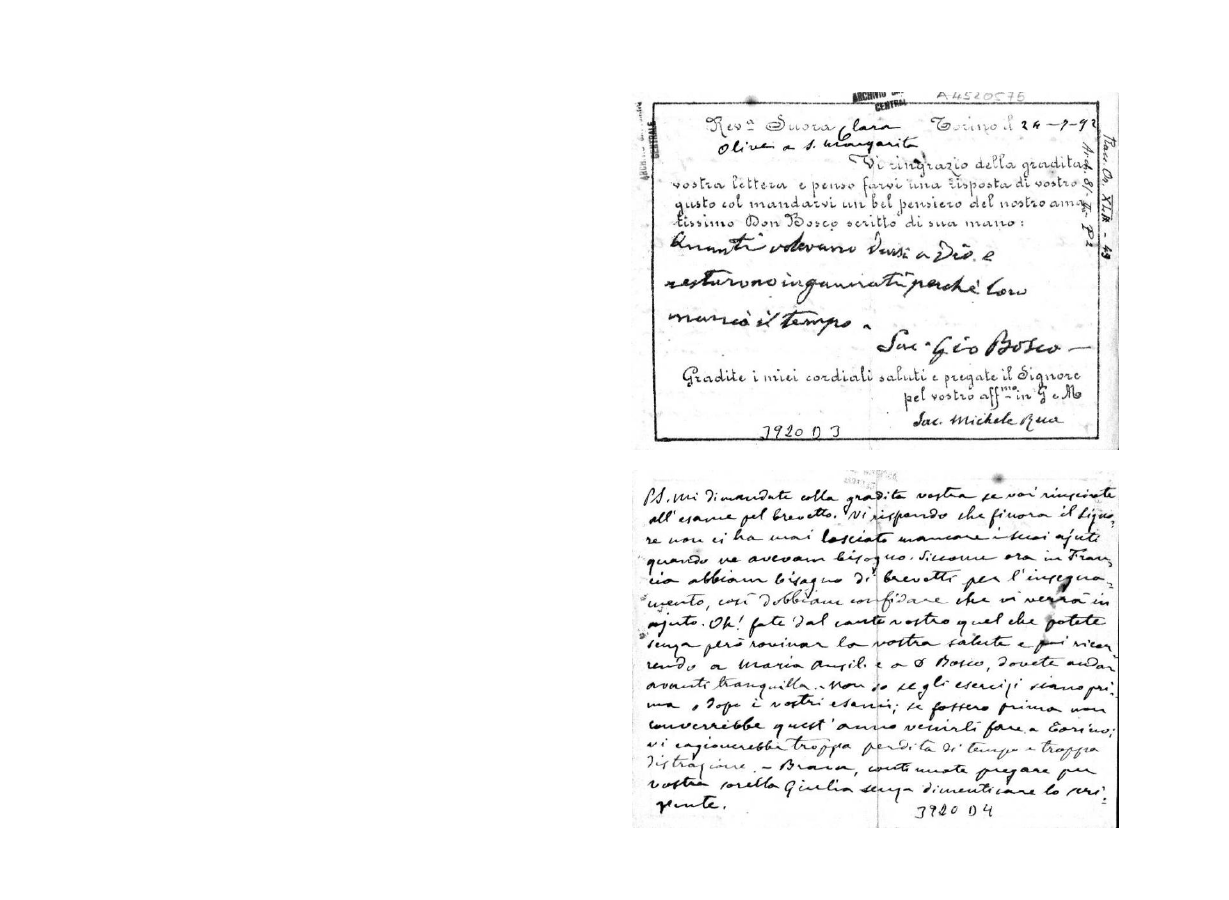 ARCHIVIO
CENTRAL
A4520575
CENTRALE
Rev.ª Suora Clara Torino il 24-7-92
Olive a S. Margarita
Vi ringrazio della gradita
vostra lettera e penso farvi una risposta di vostro
gusto col mandarvi un bel pensiero del nostro ama-
tissimo Don Bosco scritto di sua mano:
Quanti volevano darsi a Dio e
restarono ingannati perchè loro
mancò il tempo.
Sac. Gio Bosco
Gradite i miei cordiali saluti e pregate il Signore
pel vostro aff.mo in G e M
Sac. Michele Rua
3920 D 3
P.S. Mi dimandate colla gradita vostra se voi riuscirete
all'esame pel brevetto. Vi rispondo che finora il Signo-
re non ci ha mai lasciato mancare i suoi ajuti
quando ne avevam bisogno. Siccome ora in Fran-
cia abbiam bisogno di brevetti per l'insegna-
mento, così dobbiam confidare che vi verrà in
ajuto. Oh! fate dal canto vostro quel che potete
senza però rovinar la vostra salute e poi ricor-
rendo a Maria Ausil. e a D Bosco, dovete andar
avanti tranquilla. - Non so se gli esercizi siano pri-
ma o dopo i vostri esami; se fossero prima non
converrebbe quest'anno venirli fare a Torino;
vi cagionerebbe troppa perdita di tempo e troppa
distrazione. - Brava, continuate pregare per
vostra sorella Giulia senza dimenticare lo scri-
vente.
3920 D 4